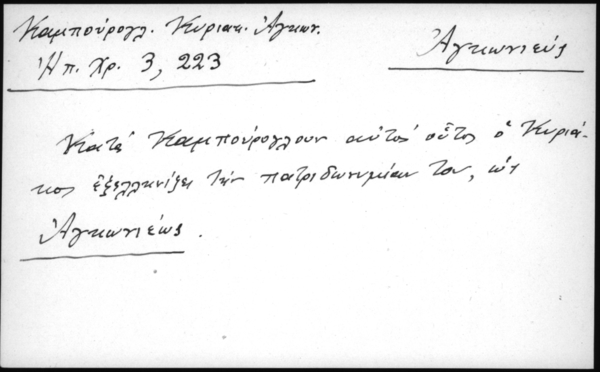 Καμπούρογλ. Κυριακ. Ἀγκων.
Ἠπ. Χρ. 3, 223
Ἀγκωνιεύς
Κατὰ Καμπούρογλουν αὐτὸς οὗτος ὁ Κυριά-
κος ἐξελληνίζει τὴν πατριδωνυμίαν του, ὡς
Ἀγκωνιέως.